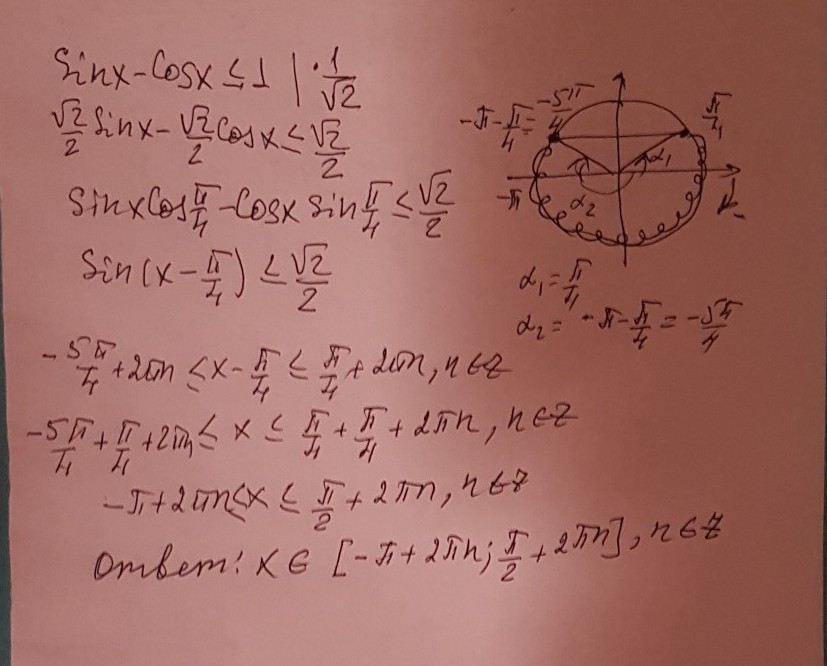 Sinx - Cosx ≤ 1 | · 1/√2
√2/2 Sinx - √2/2 Cosx ≤ √2/2
Sinx Cos π/4 - Cosx Sin π/4 ≤ √2/2
Sin(x - π/4) ≤ √2/2
-π - π/4 = -5π/4
π/4
α₁
-π
α₂
α₁ = π/4
α₂ = -π - π/4 = -5π/4
-5π/4 + 2πn ≤ x - π/4 ≤ π/4 + 2πn, n∈Z
-5π/4 + π/4 + 2πn ≤ x ≤ π/4 + π/4 + 2πn, n∈Z
-π + 2πn ≤ x ≤ π/2 + 2πn, n∈Z
Ответ: x ∈ [-π + 2πn; π/2 + 2πn], n∈Z